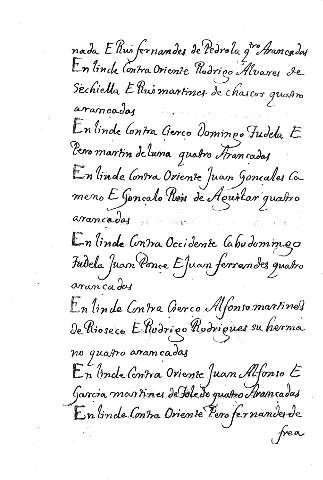 nada E Ruis fernandes de Pedrola qtro Arancadas
En linde Contra Oriente Rodrigo Alvares de
Sechiella E Ruis martines de chascor quatro
arancadas
En linde Contra Cierco Domingo Tudela E
Pero martin de luna quatro Arancadas
En linde Contra Oriente Juan Gonçales Ca
meno E Gonçalo Ruis de Aguilar quatro
arancadas
En linde Contra Occidente Cabo domingo
Tudela Juan Ponçe E Juan ferrandes quatro
arancadas
En linde Contra Cierco Alfonso martines
de Rioseco E Rodrigo Rodrigues su herma
no quatro arancadas
En linde Contra Oriente Juan Alfonso E
Garcia martines de Toledo quatro Arancadas
En linde Contra Oriente Pero fernandes de
frea